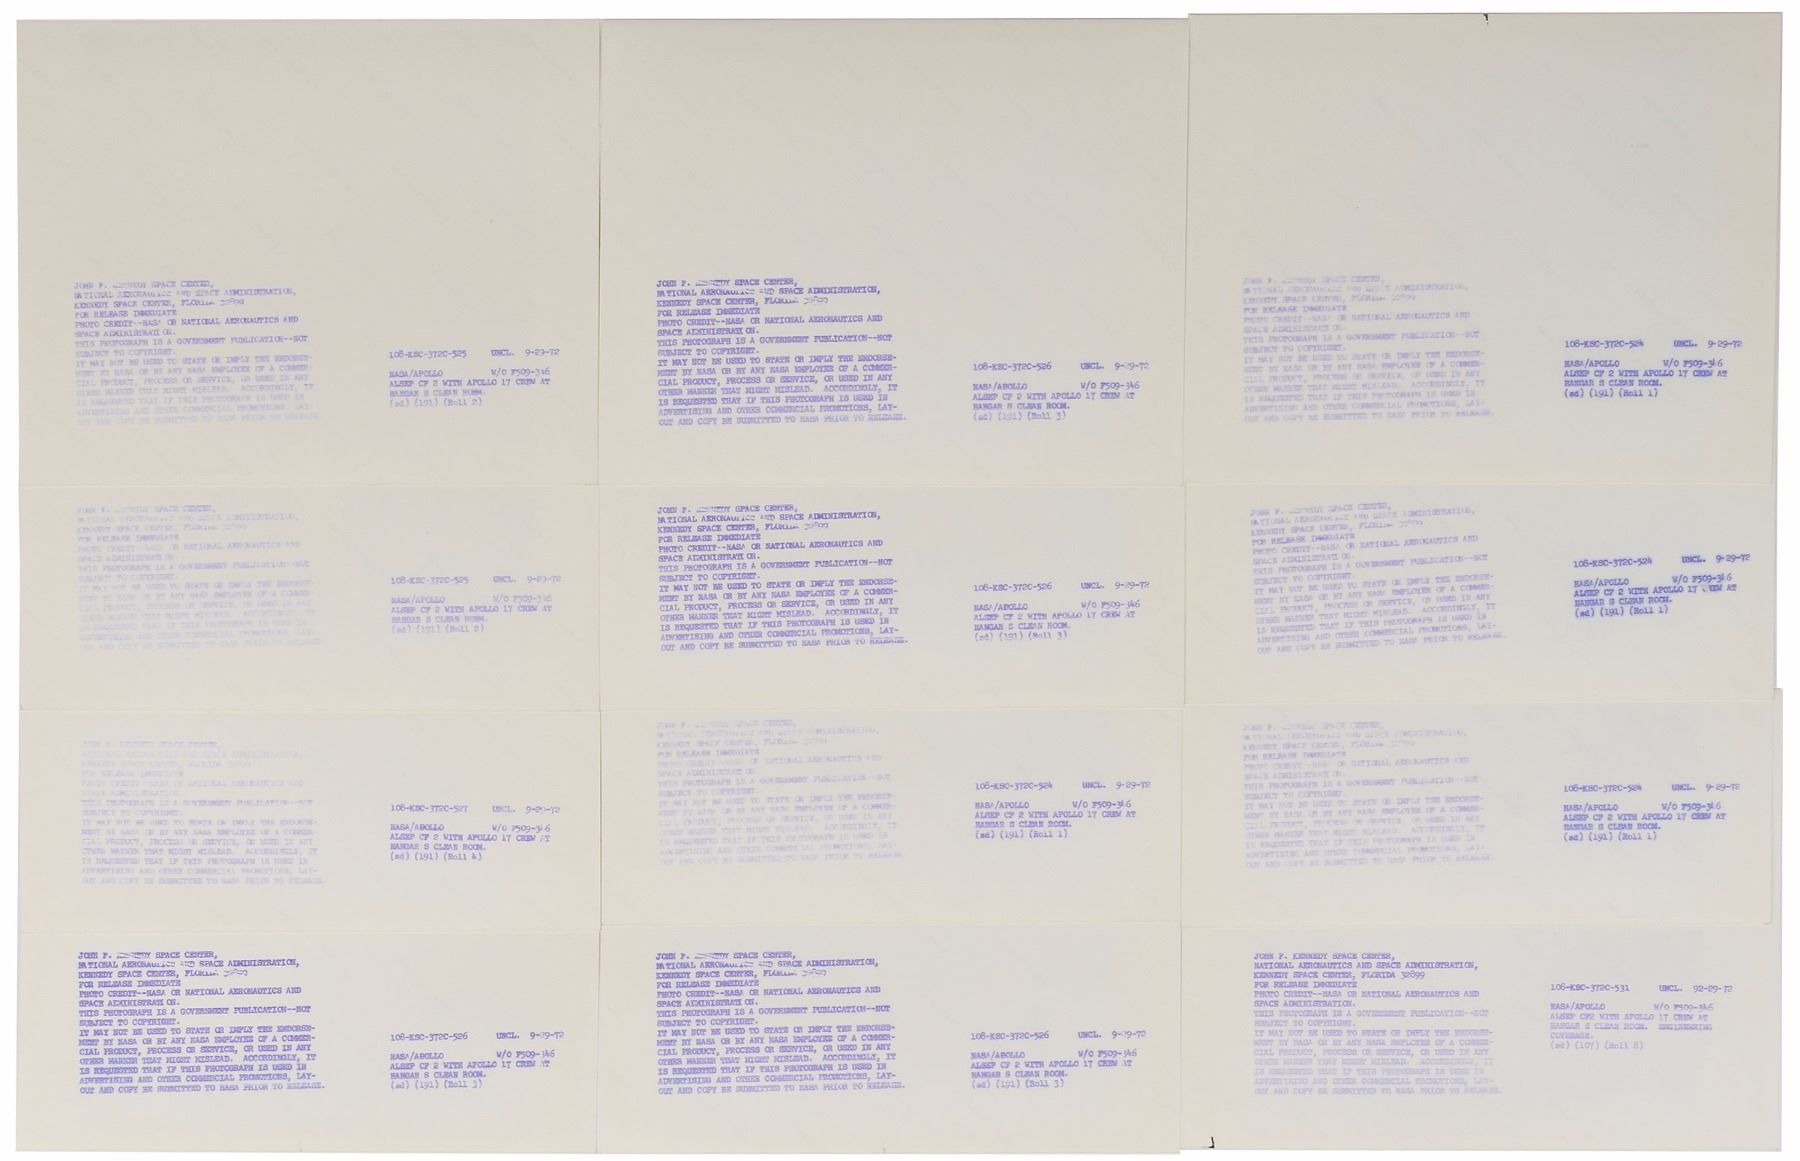 JOHN F. KENNEDY SPACE CENTER,
NATIONAL AERONAUTICS AND SPACE ADMINISTRATION,
KENNEDY SPACE CENTER, FLORIDA 32899
FOR RELEASE IMMEDIATE
PHOTO CREDIT--NASA OR NATIONAL AERONAUTICS AND
SPACE ADMINISTRATION.
THIS PHOTOGRAPH IS A GOVERNMENT PUBLICATION--NOT
SUBJECT TO COPYRIGHT.
IT MAY NOT BE USED TO STATE OR IMPLY THE ENDORSE-
MENT BY NASA OR BY ANY NASA EMPLOYEE OF A COMMER-
CIAL PRODUCT, PROCESS OR SERVICE, OR USED IN ANY
OTHER MANNER THAT MIGHT MISLEAD. ACCORDINGLY, IT
IS REQUESTED THAT IF THIS PHOTOGRAPH IS USED IN
ADVERTISING AND OTHER COMMERCIAL PROMOTIONS, LAY-
OUT AND COPY BE SUBMITTED TO NASA PRIOR TO RELEASE.
108-KSC-372C-525 UNCL. 9-29-72
NASA/APOLLO W/O F509-346
ALSEP CF 2 WITH APOLLO 17 CREW AT
HANGAR S CLEAN ROOM.
(sd) (191) (Roll 2)
JOHN F. KENNEDY SPACE CENTER,
NATIONAL AERONAUTICS AND SPACE ADMINISTRATION,
KENNEDY SPACE CENTER, FLORIDA 32899
FOR RELEASE IMMEDIATE
PHOTO CREDIT--NASA OR NATIONAL AERONAUTICS AND
SPACE ADMINISTRATION.
THIS PHOTOGRAPH IS A GOVERNMENT PUBLICATION--NOT
SUBJECT TO COPYRIGHT.
IT MAY NOT BE USED TO STATE OR IMPLY THE ENDORSE-
MENT BY NASA OR BY ANY NASA EMPLOYEE OF A COMMER-
CIAL PRODUCT, PROCESS OR SERVICE, OR USED IN ANY
OTHER MANNER THAT MIGHT MISLEAD. ACCORDINGLY, IT
IS REQUESTED THAT IF THIS PHOTOGRAPH IS USED IN
ADVERTISING AND OTHER COMMERCIAL PROMOTIONS, LAY-
OUT AND COPY BE SUBMITTED TO NASA PRIOR TO RELEASE.
108-KSC-372C-526 UNCL. 9-29-72
NASA/ABOLLO W/O F509-346
ALSEP CF 2 WITH APOLLO 17 CREW AT
HANGAR S CLEAN ROOM.
(sd) (191) (Roll 3)
JOHN F. KENNEDY SPACE CENTER,
NATIONAL AERONAUTICS AND SPACE ADMINISTRATION,
KENNEDY SPACE CENTER, FLORIDA 32899
FOR RELEASE IMMEDIATE
PHOTO CREDIT--NASA OR NATIONAL AERONAUTICS AND
SPACE ADMINISTRATION.
THIS PHOTOGRAPH IS A GOVERNMENT PUBLICATION--NOT
SUBJECT TO COPYRIGHT.
IT MAY NOT BE USED TO STATE OR IMPLY THE ENDORSE-
MENT BY NASA OR BY ANY NASA EMPLOYEE OF A COMMER-
CIAL PRODUCT, PROCESS OR SERVICE, OR USED IN ANY
OTHER MANNER THAT MIGHT MISLEAD. ACCORDINGLY, IT
IS REQUESTED THAT IF THIS PHOTOGRAPH IS USED IN
ADVERTISING AND OTHER COMMERCIAL PROMOTIONS, LAY-
OUT AND COPY BE SUBMITTED TO NASA PRIOR TO RELEASE.
108-KSC-372C-524 UNCL. 9-29-72
NASA/APOLLO W/O F509-346
ALSEP CF 2 WITH APOLLO 17 CREW AT
HANGAR S CLEAN ROOM.
(sd) (191) (Roll 1)
JOHN F. KENNEDY SPACE CENTER,
NATIONAL AERONAUTICS AND SPACE ADMINISTRATION,
KENNEDY SPACE CENTER, FLORIDA 32899
FOR RELEASE IMMEDIATE
PHOTO CREDIT--NASA OR NATIONAL AERONAUTICS AND
SPACE ADMINISTRATION.
THIS PHOTOGRAPH IS A GOVERNMENT PUBLICATION--NOT
SUBJECT TO COPYRIGHT.
IT MAY NOT BE USED TO STATE OR IMPLY THE ENDORSE-
MENT BY NASA OR BY ANY NASA EMPLOYEE OF A COMMER-
CIAL PRODUCT, PROCESS OR SERVICE, OR USED IN ANY
OTHER MANNER THAT MIGHT MISLEAD. ACCORDINGLY, IT
IS REQUESTED THAT IF THIS PHOTOGRAPH IS USED IN
ADVERTISING AND OTHER COMMERCIAL PROMOTIONS, LAY-
OUT AND COPY BE SUBMITTED TO NASA PRIOR TO RELEASE
108-KSC-372C-525 UNCL. 9-29-72
NASA/APOLLO W/O F509-346
ALSEP CF 2 WITH APOLLO 17 CREW AT
HANGAR S CLEAN ROOM.
(sd) (191) (Roll 2)
JOHN F. KENNEDY SPACE CENTER,
NATIONAL AERONAUTICS AND SPACE ADMINISTRATION,
KENNEDY SPACE CENTER, FLORIDA 32899
FOR RELEASE IMMEDIATE
PHOTO CREDIT--NASA OR NATIONAL AERONAUTICS AND
SPACE ADMINISTRATION.
THIS PHOTOGRAPH IS A GOVERNMENT PUBLICATION--NOT
SUBJECT TO COPYRIGHT.
IT MAY NOT BE USED TO STATE OR IMPLY THE ENDORSE-
MENT BY NASA OR BY ANY NASA EMPLOYEE OF A COMMER-
CIAL PRODUCT, PROCESS OR SERVICE, OR USED IN ANY
OTHER MANNER THAT MIGHT MISLEAD. ACCORDINGLY, IT
IS REQUESTED THAT IF THIS PHOTOGRAPH IS USED IN
ADVERTISING AND OTHER COMMERCIAL PROMOTIONS, LAY-
OUT AND COPY BE SUBMITTED TO NASA PRIOR TO RELEASE.
108-KSC-372C-526 UNCL. 9-29-72
NASA/ABOLLO W/O F509-346
ALSEP CF 2 WITH APOLLO 17 CREW AT
HANGAR S CLEAN ROOM.
(sd) (191) (Roll 3)
JOHN F. KENNEDY SPACE CENTER,
NATIONAL AERONAUTICS AND SPACE ADMINISTRATION,
KENNEDY SPACE CENTER, FLORIDA 32899
FOR RELEASE IMMEDIATE
PHOTO CREDIT--NASA OR NATIONAL AERONAUTICS AND
SPACE ADMINISTRATION.
THIS PHOTOGRAPH IS A GOVERNMENT PUBLICATION--NOT
SUBJECT TO COPYRIGHT.
IT MAY NOT BE USED TO STATE OR IMPLY THE ENDORSE-
MENT BY NASA OR BY ANY NASA EMPLOYEE OF A COMMER-
CIAL PRODUCT, PROCESS OR SERVICE, OR USED IN ANY
OTHER MANNER THAT MIGHT MISLEAD. ACCORDINGLY, IT
IS REQUESTED THAT IF THIS PHOTOGRAPH IS USED IN
ADVERTISING AND OTHER COMMERCIAL PROMOTIONS, LAY-
OUT AND COPY BE SUBMITTED TO NASA PRIOR TO RELEASE.
108-KSC-372C-524 UNCL. 9-29-72
NASA/APOLLO W/O F509-346
ALSEP CF 2 WITH APOLLO 17 CREW AT
HANGAR S CLEAN ROOM.
(sd) (191) (Roll 1)
JOHN F. KENNEDY SPACE CENTER,
NATIONAL AERONAUTICS AND SPACE ADMINISTRATION,
KENNEDY SPACE CENTER, FLORIDA 32899
FOR RELEASE IMMEDIATE
PHOTO CREDIT--NASA OR NATIONAL AERONAUTICS AND
SPACE ADMINISTRATION.
THIS PHOTOGRAPH IS A GOVERNMENT PUBLICATION--NOT
SUBJECT TO COPYRIGHT.
IT MAY NOT BE USED TO STATE OR IMPLY THE ENDORSE-
MENT BY NASA OR BY ANY NASA EMPLOYEE OF A COMMER-
CIAL PRODUCT, PROCESS OR SERVICE, OR USED IN ANY
OTHER MANNER THAT MIGHT MISLEAD. ACCORDINGLY, IT
IS REQUESTED THAT IF THIS PHOTOGRAPH IS USED IN
ADVERTISING AND OTHER COMMERCIAL PROMOTIONS, LAY-
OUT AND COPY BE SUBMITTED TO NASA PRIOR TO RELEASE.
108-KSC-372C-527 UNCL. 9-29-72
NASA/ABOLLO W/O F509-346
ALSEP CF 2 WITH APOLLO 17 CREW AT
HANGAR S CLEAN ROOM.
(sd) (191) (Roll 4)
JOHN F. KENNEDY SPACE CENTER,
NATIONAL AERONAUTICS AND SPACE ADMINISTRATION,
KENNEDY SPACE CENTER, FLORIDA 32899
FOR RELEASE IMMEDIATE
PHOTO CREDIT--NASA OR NATIONAL AERONAUTICS AND
SPACE ADMINISTRATION.
THIS PHOTOGRAPH IS A GOVERNMENT PUBLICATION--NOT
SUBJECT TO COPYRIGHT.
IT MAY NOT BE USED TO STATE OR IMPLY THE ENDORSE-
MENT BY NASA OR BY ANY NASA EMPLOYEE OF A COMMER-
CIAL PRODUCT, PROCESS OR SERVICE, OR USED IN ANY
OTHER MANNER THAT MIGHT MISLEAD. ACCORDINGLY, IT
IS REQUESTED THAT IF THIS PHOTOGRAPH IS USED IN
ADVERTISING AND OTHER COMMERCIAL PROMOTIONS, LAY-
OUT AND COPY BE SUBMITTED TO NASA PRIOR TO RELEASE
108-KSC-372C-524 UNCL. 9-29-72
NASA/APOLLO W/O F509-346
ALSEP CF 2 WITH APOLLO 17 CREW AT
HANGAR S CLEAN ROOM.
(sd) (191) (Roll 1)
JOHN F. KENNEDY SPACE CENTER,
NATIONAL AERONAUTICS AND SPACE ADMINISTRATION,
KENNEDY SPACE CENTER, FLORIDA 32899
FOR RELEASE IMMEDIATE
PHOTO CREDIT--NASA OR NATIONAL AERONAUTICS AND
SPACE ADMINISTRATION.
THIS PHOTOGRAPH IS A GOVERNMENT PUBLICATION--NOT
SUBJECT TO COPYRIGHT.
IT MAY NOT BE USED TO STATE OR IMPLY THE ENDORSE-
MENT BY NASA OR BY ANY NASA EMPLOYEE OF A COMMER-
CIAL PRODUCT, PROCESS OR SERVICE, OR USED IN ANY
OTHER MANNER THAT MIGHT MISLEAD. ACCORDINGLY, IT
IS REQUESTED THAT IF THIS PHOTOGRAPH IS USED IN
ADVERTISING AND OTHER COMMERCIAL PROMOTIONS, LAY-
OUT AND COPY BE SUBMITTED TO NASA PRIOR TO RELEASE.
108-KSC-372C-524 UNCL. 9-29-72
NASA/APOLLO W/O F509-346
ALSEP CF 2 WITH APOLLO 17 CREW AT
HANGAR S CLEAN ROOM.
(sd) (191) (Roll 1)
JOHN F. KENNEDY SPACE CENTER,
NATIONAL AERONAUTICS AND SPACE ADMINISTRATION,
KENNEDY SPACE CENTER, FLORIDA 32899
FOR RELEASE IMMEDIATE
PHOTO CREDIT--NASA OR NATIONAL AERONAUTICS AND
SPACE ADMINISTRATION.
THIS PHOTOGRAPH IS A GOVERNMENT PUBLICATION--NOT
SUBJECT TO COPYRIGHT.
IT MAY NOT BE USED TO STATE OR IMPLY THE ENDORSE-
MENT BY NASA OR BY ANY NASA EMPLOYEE OF A COMMER-
CIAL PRODUCT, PROCESS OR SERVICE, OR USED IN ANY
OTHER MANNER THAT MIGHT MISLEAD. ACCORDINGLY, IT
IS REQUESTED THAT IF THIS PHOTOGRAPH IS USED IN
ADVERTISING AND OTHER COMMERCIAL PROMOTIONS, LAY-
OUT AND COPY BE SUBMITTED TO NASA PRIOR TO RELEASE.
108-KSC-372C-526 UNCL. 9-29-72
NASA/ABOLLO W/O F509-346
ALSEP CF 2 WITH APOLLO 17 CREW AT
HANGAR S CLEAN ROOM.
(sd) (191) (Roll 3)
JOHN F. KENNEDY SPACE CENTER,
NATIONAL AERONAUTICS AND SPACE ADMINISTRATION,
KENNEDY SPACE CENTER, FLORIDA 32899
FOR RELEASE IMMEDIATE
PHOTO CREDIT--NASA OR NATIONAL AERONAUTICS AND
SPACE ADMINISTRATION.
THIS PHOTOGRAPH IS A GOVERNMENT PUBLICATION--NOT
SUBJECT TO COPYRIGHT.
IT MAY NOT BE USED TO STATE OR IMPLY THE ENDORSE-
MENT BY NASA OR BY ANY NASA EMPLOYEE OF A COMMER-
CIAL PRODUCT, PROCESS OR SERVICE, OR USED IN ANY
OTHER MANNER THAT MIGHT MISLEAD. ACCORDINGLY, IT
IS REQUESTED THAT IF THIS PHOTOGRAPH IS USED IN
ADVERTISING AND OTHER COMMERCIAL PROMOTIONS, LAY-
OUT AND COPY BE SUBMITTED TO NASA PRIOR TO RELEASE.
108-KSC-372C-526 UNCL. 9-29-72
NASA/ABOLLO W/O F509-346
ALSEP CF 2 WITH APOLLO 17 CREW AT
HANGAR S CLEAN ROOM.
(sd) (191) (Roll 3)
JOHN F. KENNEDY SPACE CENTER,
NATIONAL AERONAUTICS AND SPACE ADMINISTRATION,
KENNEDY SPACE CENTER, FLORIDA 32899
FOR RELEASE IMMEDIATE
PHOTO CREDIT--NASA OR NATIONAL AERONAUTICS AND
SPACE ADMINISTRATION.
THIS PHOTOGRAPH IS A GOVERNMENT PUBLICATION--NOT
SUBJECT TO COPYRIGHT.
IT MAY NOT BE USED TO STATE OR IMPLY THE ENDORSE-
MENT BY NASA OR BY ANY NASA EMPLOYEE OF A COMMER-
CIAL PRODUCT, PROCESS OR SERVICE, OR USED IN ANY
OTHER MANNER THAT MIGHT MISLEAD. ACCORDINGLY, IT
IS REQUESTED THAT IF THIS PHOTOGRAPH IS USED IN
ADVERTISING AND OTHER COMMERCIAL PROMOTIONS, LAY-
OUT AND COPY BE SUBMITTED TO NASA PRIOR TO RELEASE.
108-KSC-372C-531 UNCL. 92-29-72
NASA/APOLLO W/O F509-346
ALSEP CF2 WITH APOLLO 17 CREW AT
HANGAR S CLEAN ROOM. ENGINEERING
COVERAGE.
(sd) (107) (Roll 8)